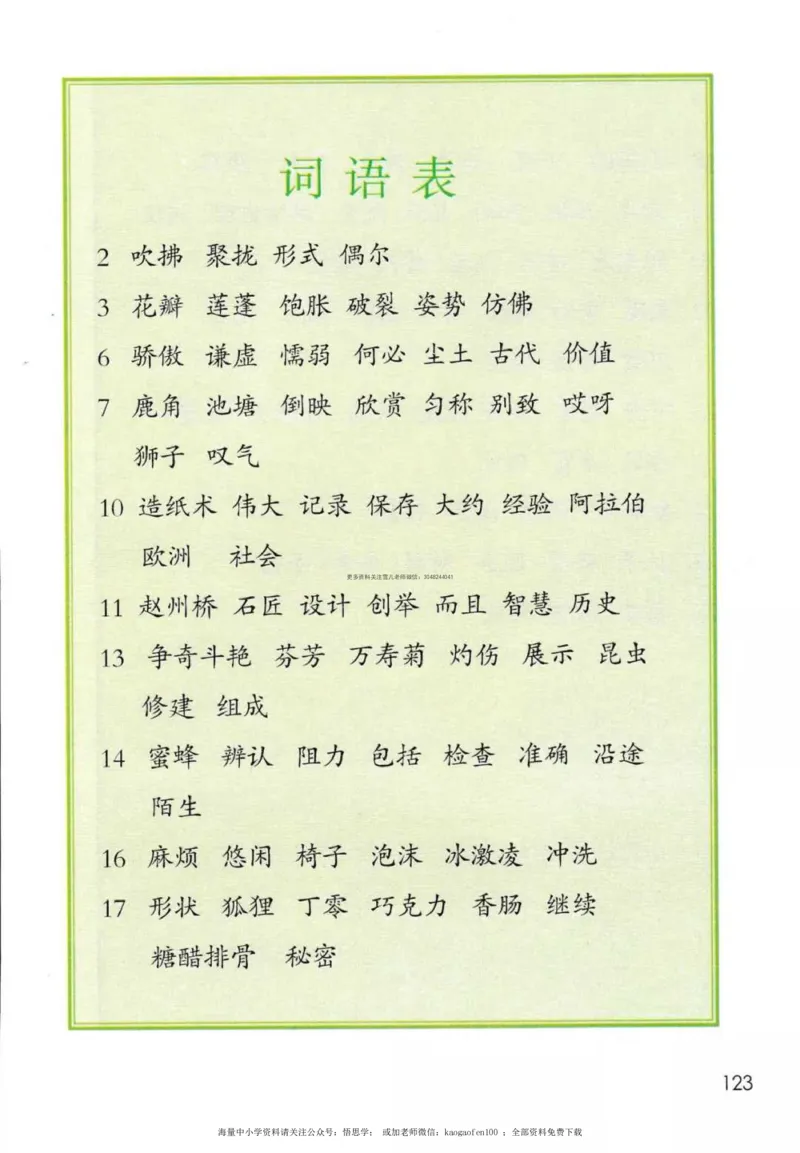 词语表
2 吹拂 聚拢 形式 偶尔
3 花瓣 莲蓬 饱胀 破裂 姿势 仿佛
6 骄傲 谦虚 懦弱 何必 尘土 古代 价值
7 鹿角 池塘 倒映 欣赏 匀称 别致 哎呀
狮子 叹气
10 造纸术 伟大 记录 保存 大约 经验 阿拉伯
欧洲 社会
更多资料关注雪儿老师微信：3048244041
11 赵州桥 石匠 设计 创举 而且 智慧 历史
13 争奇斗艳 芬芳 万寿菊 灼伤 展示 昆虫
修建 组成
14 蜜蜂 辨认 阻力 包括 检查 准确 沿途
陌生
16 麻烦 悠闲 椅子 泡沫 冰激凌 冲洗
17 形状 狐狸 丁零 巧克力 香肠 继续
糖醋排骨 秘密
123
海量中小学资料请关注公众号：悟思学； 或加老师微信：kaogaofen100 ；全部资料免费下载